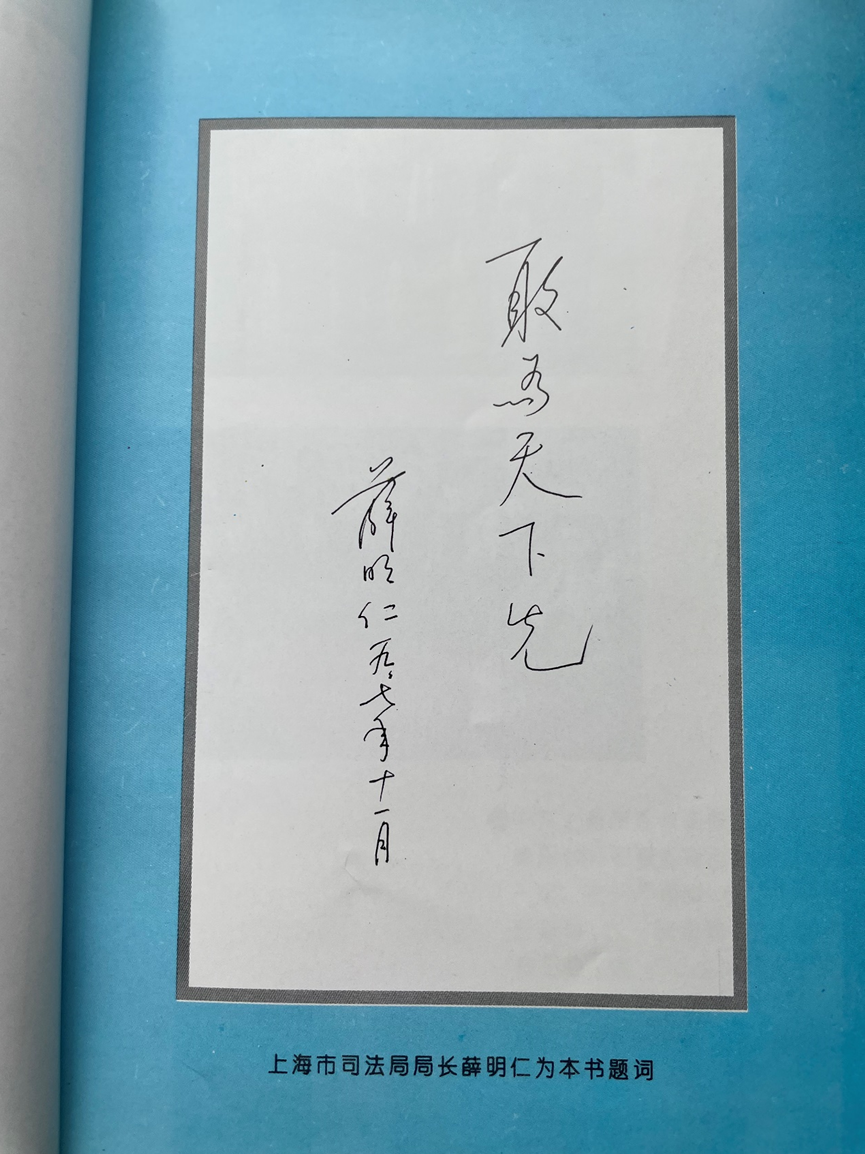 敢为天下先
薛明仁 九七年十一月
上海市司法局局长薛明仁为本书题词